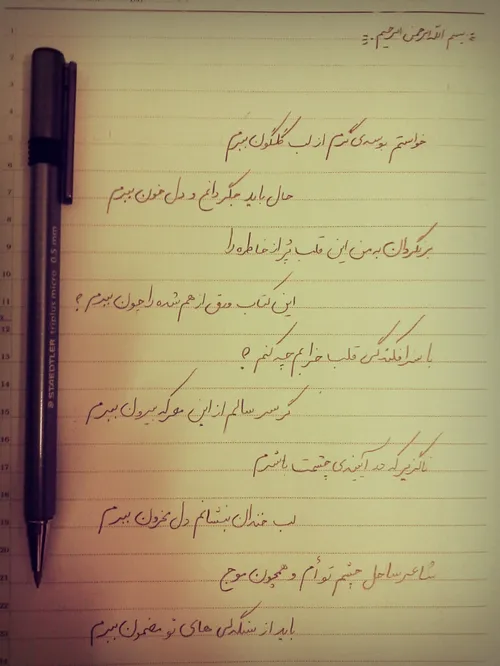 بسم الله الرحمن الرحیم
خواستم بوسه‌ی گرم از لب گلگون ببرم
حال باید جگر داغ و دل خون ببرم
برگردان به من این قلب پُر از خاطره را
این کتاب ورق از هم شده را چون ببرم ؟
با سرافکندگی قلب خرابم چه کنم ؟
گر سر سالم از این معرکه بیرون ببرم
ناگزیرم که در آیینه‌ی چشمت باشم
لب خندان بنشانم دل محزون ببرم
شاعر ساحل چشم توأم و همچون موج
باید از سنگدلی های تو مضمون ببرم
STAEDTLER triplus micro 0.5 mm
1
2
3
4
5
6
7
8
9
10
11
12
13
14
15
16
17
18
19
20
21
22
23